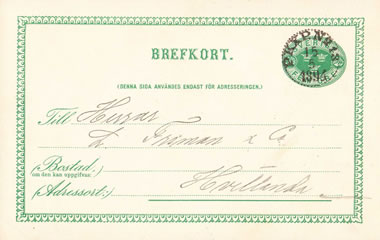 PKXP.Nr
BREFKORT.
(DENNA SIDA ANVÄNDES ENDAST FÖR ADRESSERINGEN.)
Till Herrar
L. & Co
(Bostad:
om den kan uppgifvas:)
(Adressort:) Hvetlanda